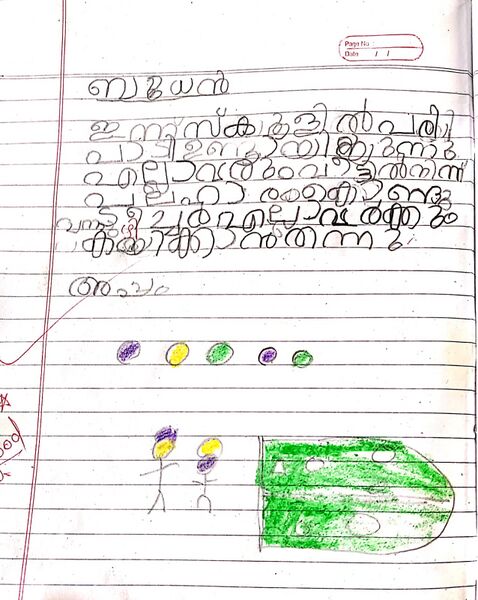 Page No
Date / /
ബുധൻ
ഇന്ന് സ്കൂളിൽ പരി
പാടി ഉണ്ടായിരുന്നു
എല്ലാവരും വീട്ടിൽ നിന്ന്
പലഹാരം കൊണ്ടു
വന്നു ടീച്ചർ എല്ലാവർക്കും
കഴിക്കാൻ തന്നു
അപ്പം